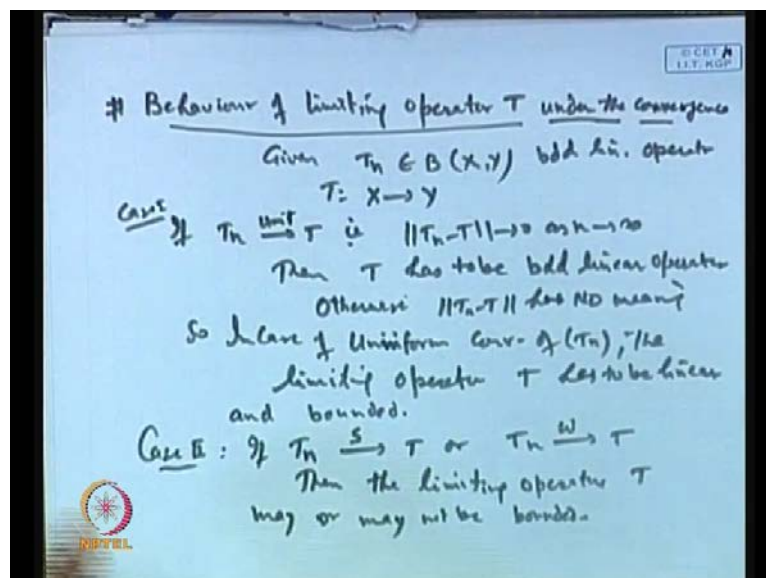 © CET
I.I.T. KGP
# Behaviour of limiting operator T under the convergence
Given Tn ∈ B(X,Y) bdd lin. operator
T: X → Y
Case I If Tn unif→ T ie ||Tn-T|| → 0 as n → ∞
Then T has to be bdd linear operator
Otherwise ||Tn-T|| has NO meaning
So In case of Uniform Conv. of (Tn), The
limiting operator T has to be linear
and bounded.
Case II : If Tn S→ T or Tn W→ T
Then the limiting operator T
may or may not be bounded.
NPTEL